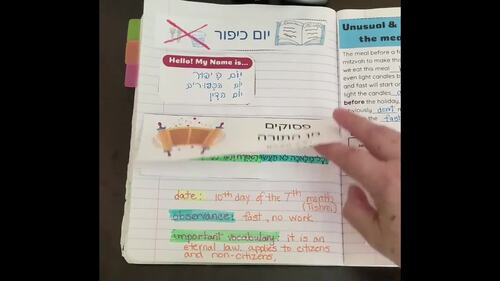 יום כיפור
Hello! My Name is...
יום כיפור
יום הכפורים
יום הדין
פסוקים
מן התורה
date: 10th day of the 7th month
(Tishrei)
observance: fast, no work
important vocabulary: it is an
eternal law, applies to citizens
and non-citizens,
Unusual &
the mea
The meal before a f
mitzvah to make tha
we eat this meal
even light candles b
and fast will start o
light the candles
before the holiday,
obviously don't
the fast